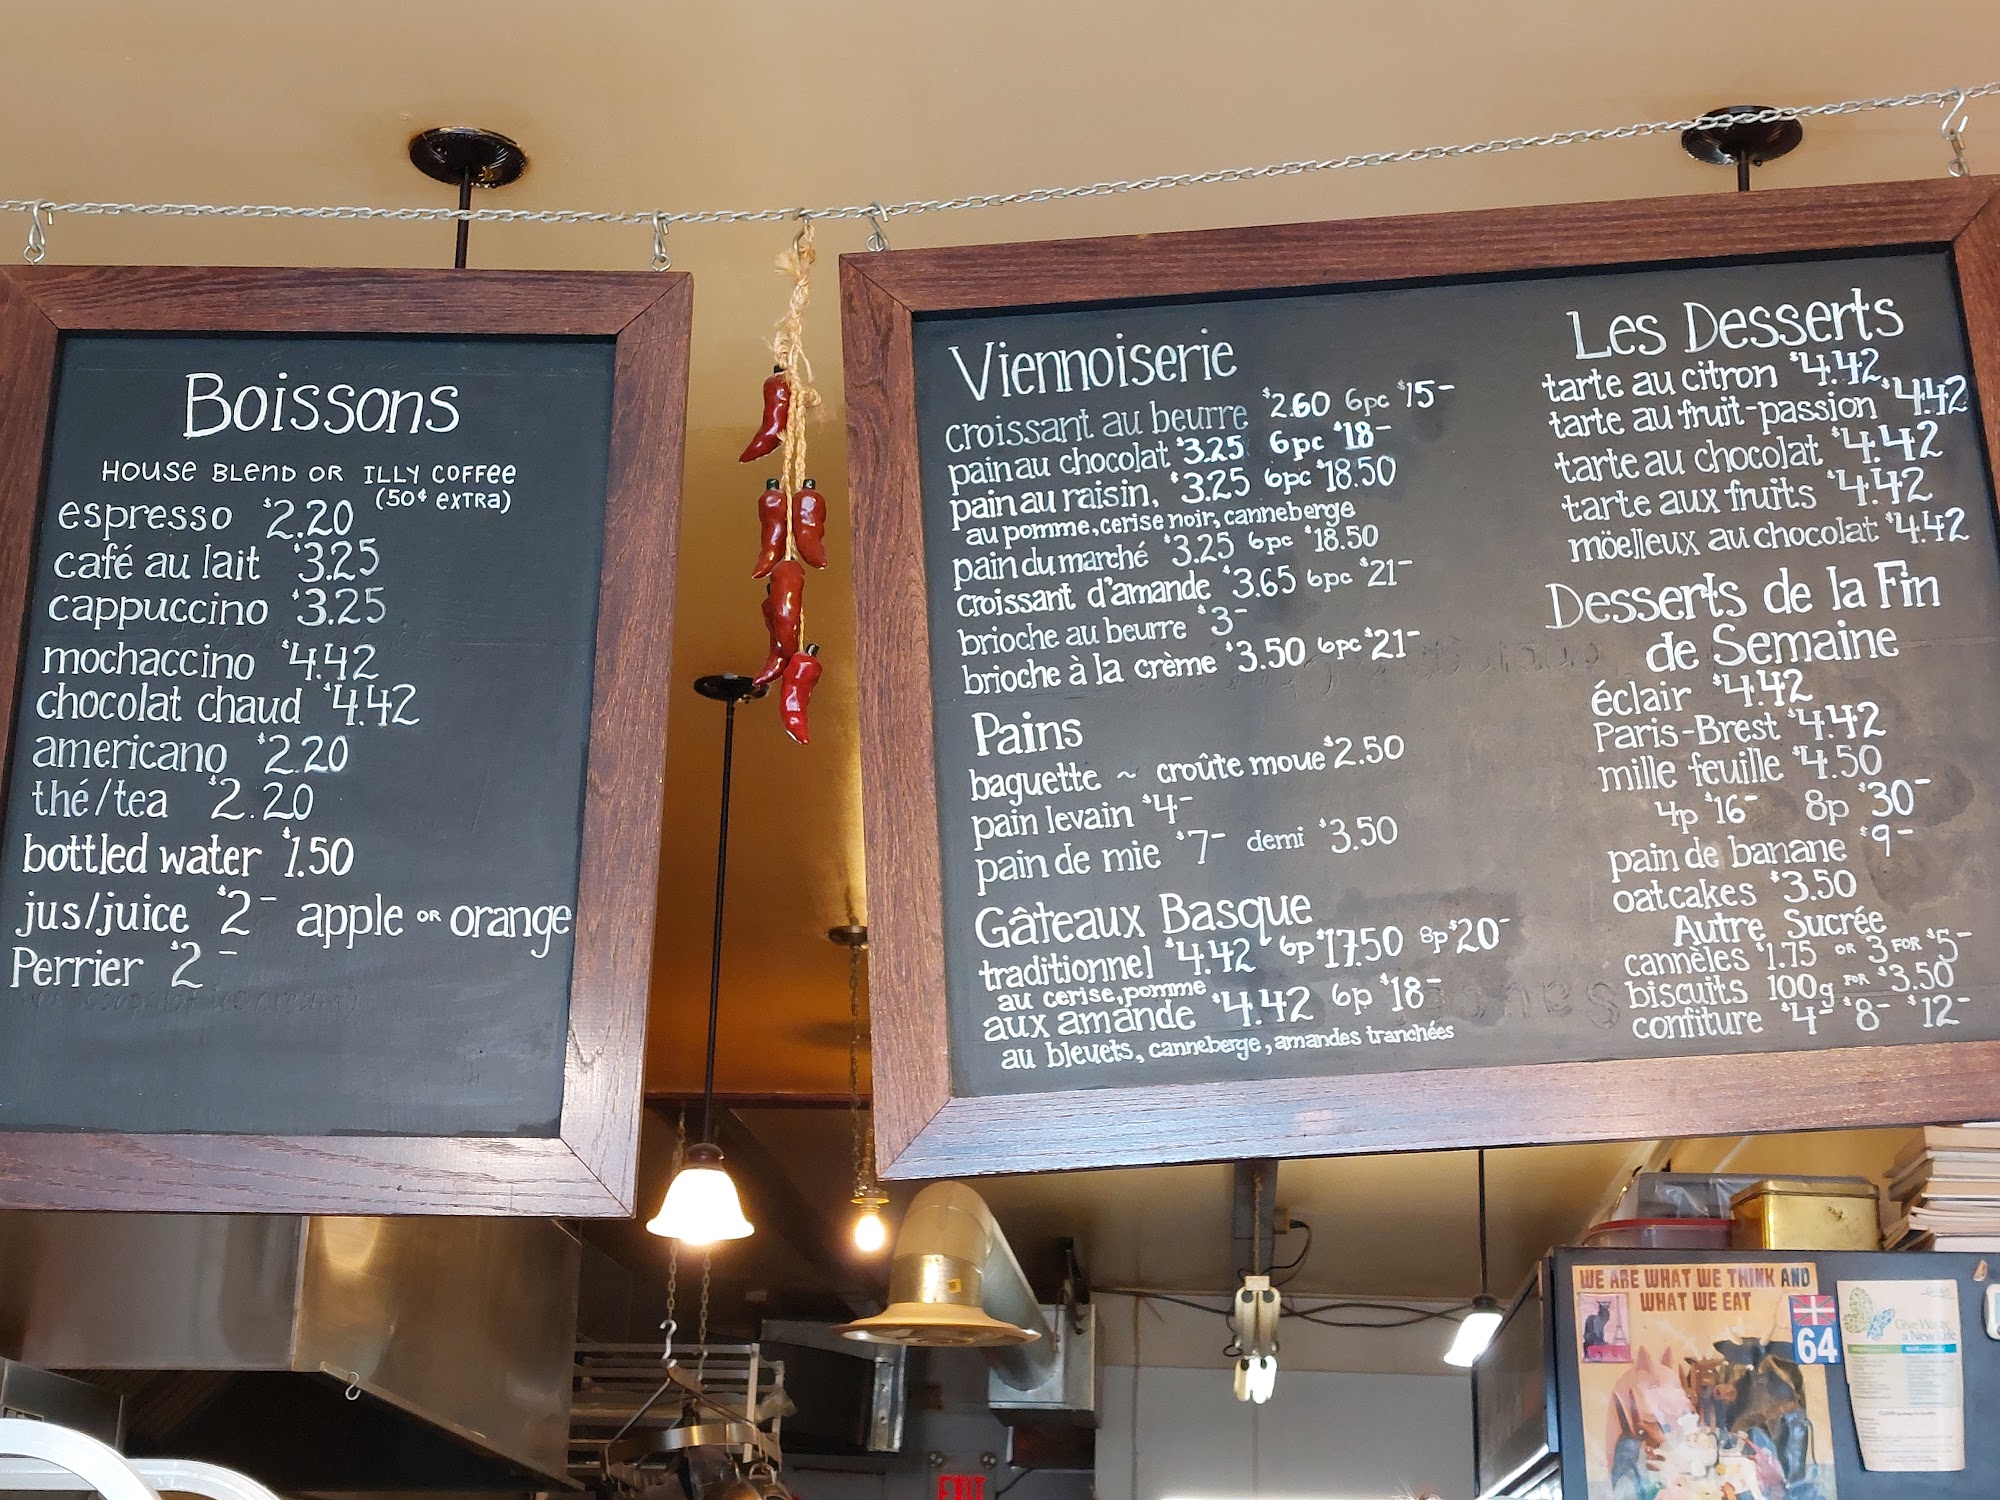 Boissons
HOUSE BLEND OR ILLY COFFEE
(50¢ EXTRA)
espresso $2.20
café au lait $3.25
cappuccino $3.25
mochaccino $4.42
chocolat chaud $4.42
americano $2.20
thé/tea $2.20
bottled water $1.50
jus/juice $2- apple OR orange
Perrier $2-
Viennoiserie
croissant au beurre $2.60 6pc $15-
pain au chocolat $3.25 6pc $18-
pain au raisin, $3.25 6pc $18.50
au pomme, cerise noir, canneberge
pain du marché $3.25 6pc $18.50
croissant d'amande $3.65 6pc $21-
brioche au beurre $3-
brioche à la crème $3.50 6pc $21-
Pains
baguette ~ croûte moue $2.50
pain levain $4-
pain de mie $7- demi $3.50
Gâteaux Basque
traditionnel $4.42 6p $17.50 8p $20-
au cerise, pomme
aux amande $4.42 6p $18-
au bleuets, canneberge, amandes tranchées
Les Desserts
tarte au citron $4.42
tarte au fruit-passion $4.42
tarte au chocolat $4.42
tarte aux fruits $4.42
möelleux au chocolat $4.42
Desserts de la Fin
de Semaine
éclair $4.42
Paris-Brest $4.42
mille feuille $4.50
4p $16- 8p $30-
pain de banane $9-
oatcakes $3.50
Autre Sucrée
cannèles $1.75 OR 3 FOR $5-
biscuits 100g FOR $3.50
confiture $4- $8- $12-
WE ARE WHAT WE THINK AND
WHAT WE EAT
64
Give Waste
a New Life
EXIT